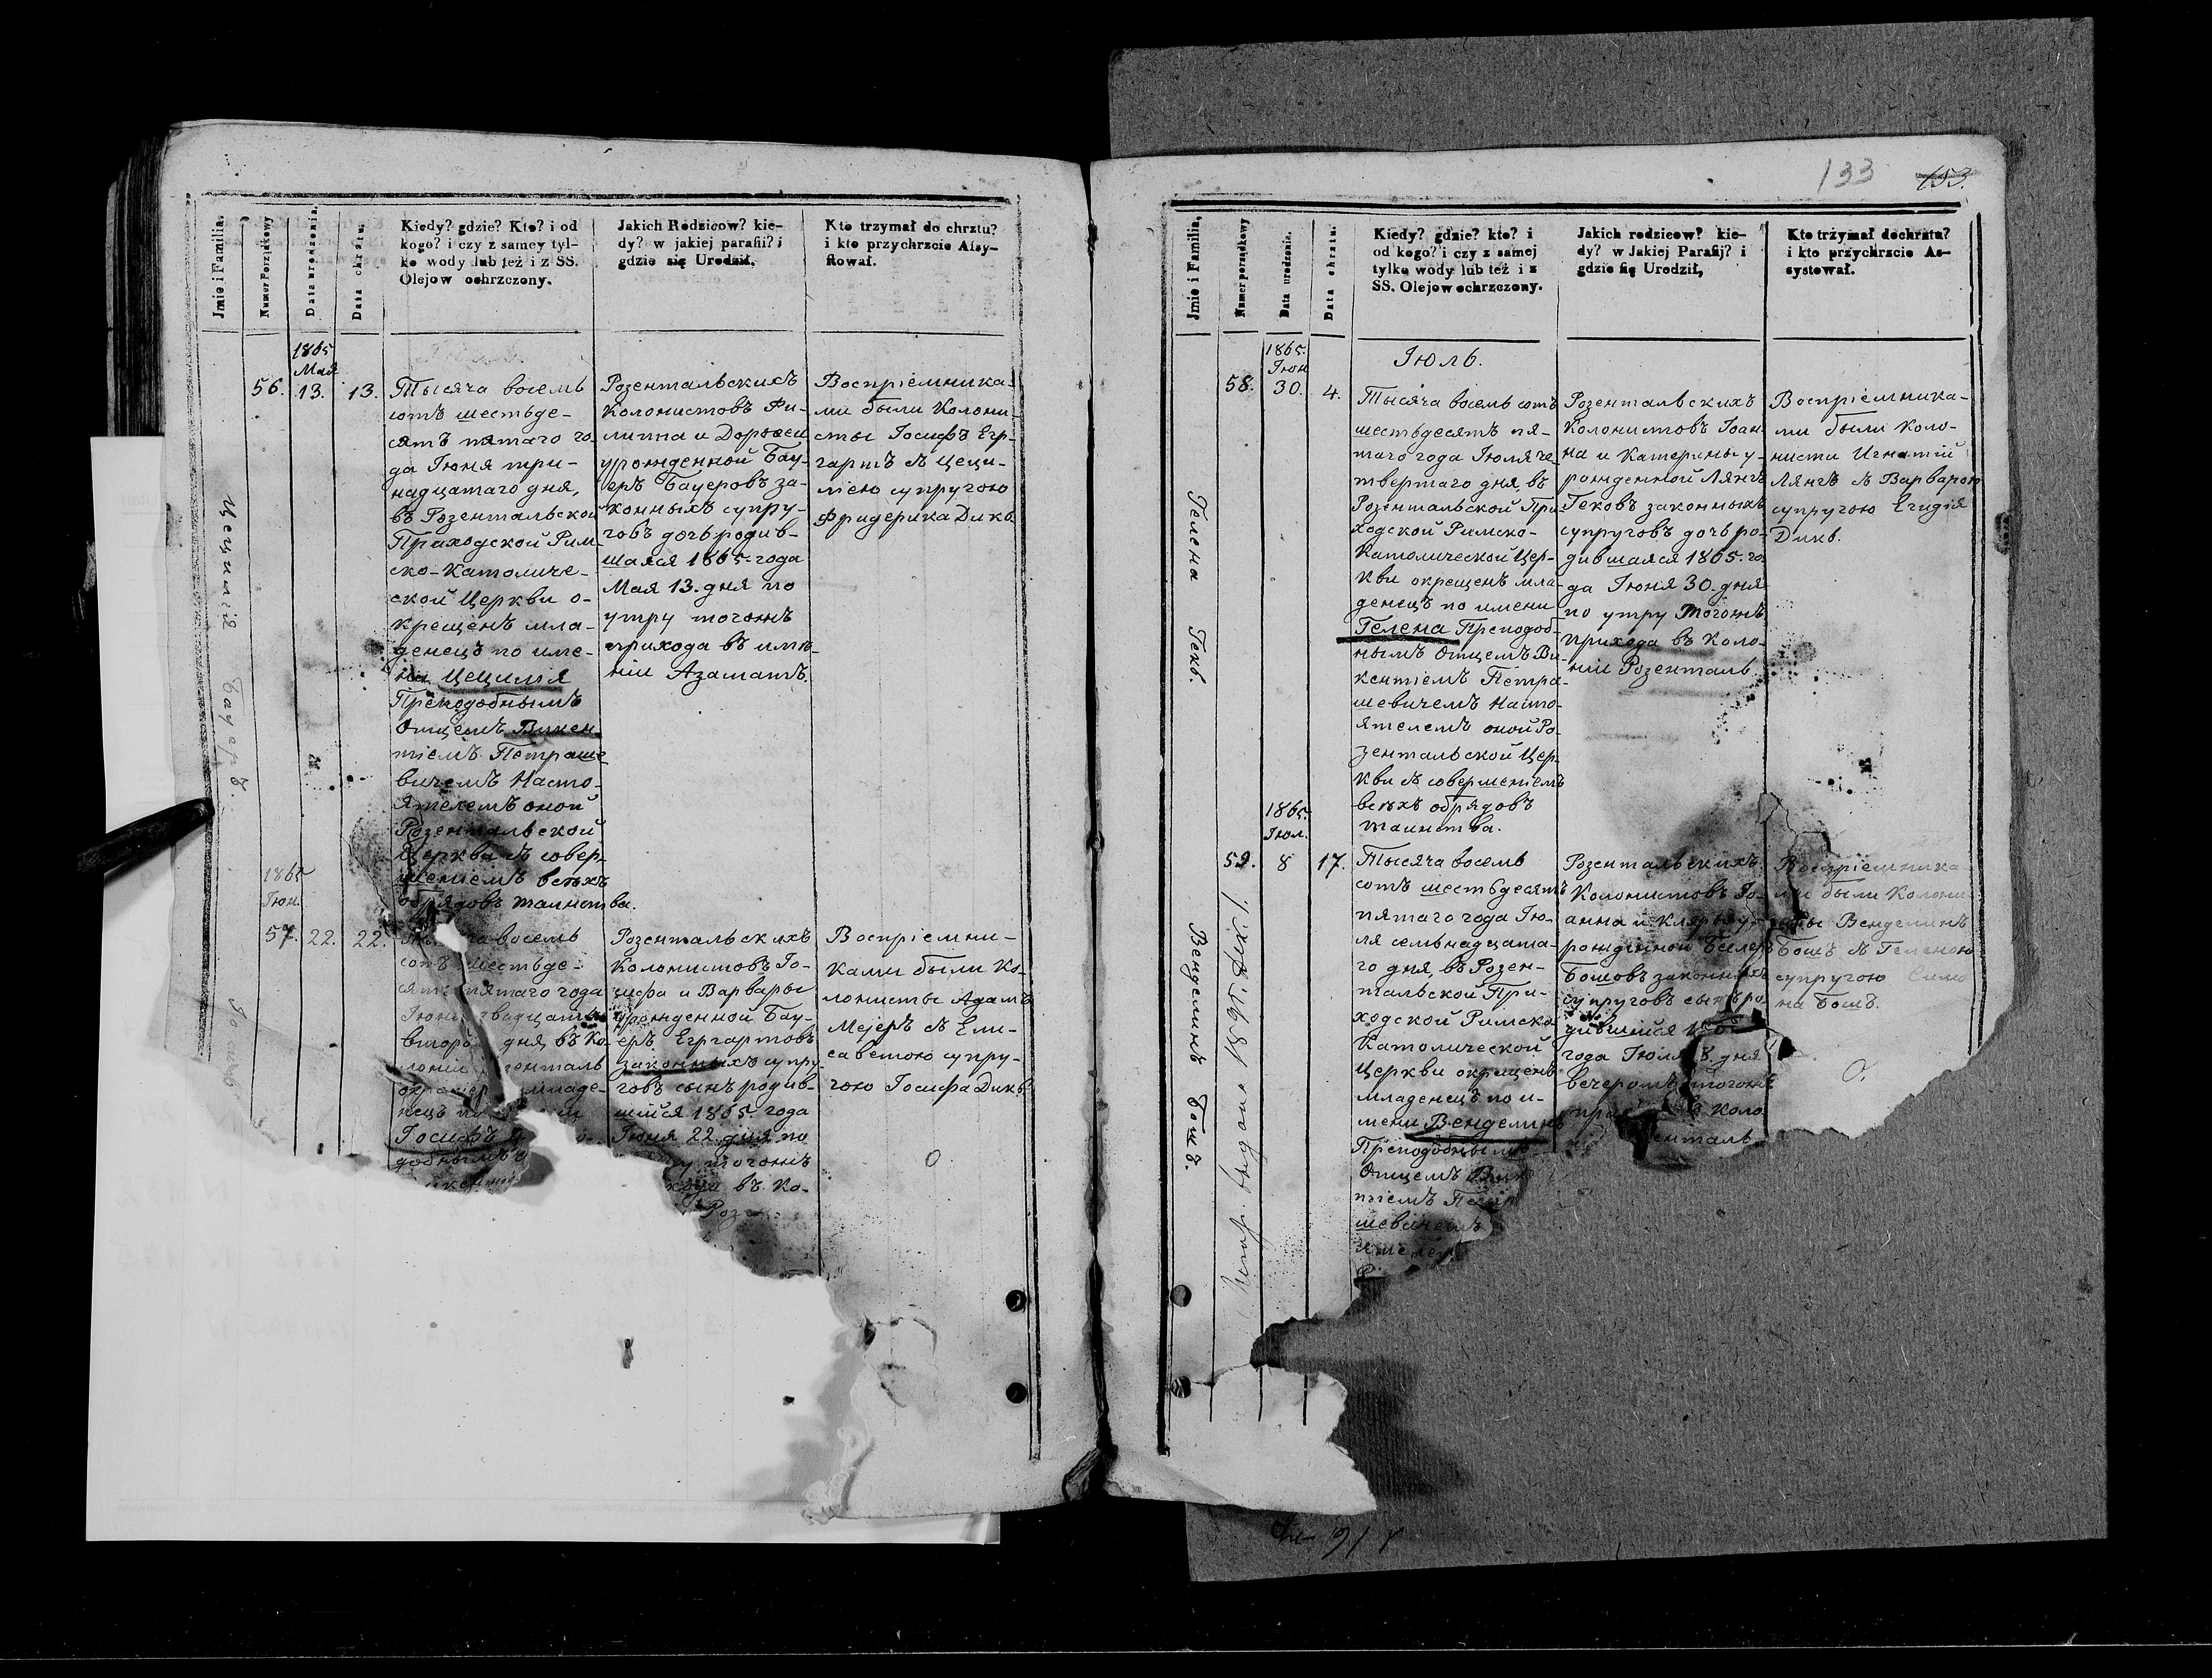 Jmie i Familia.
Numer Porządkowy
Data urodzenia.
Data chrztu.
Kiedy? gdzie? Kto? i od
kogo? i czy z samey tyl-
ko wody lub też i z SS.
Olejow ochrzczony.
Jakich Rodzicow? kie-
dy? w jakiej parafii? i
gdzie się Urodził.
Kto trzymał do chrztu?
i kto przychrzcie Assy-
stował.
Цецилія Бауеръ.
1865
Мая
56. 13. 13.
Тысяча восемь
сотъ шестьде-
сятъ пятаго го-
да Іюня три-
надцатаго дня,
въ Розентальской
Приходской Рим-
ско-Католиче-
ской Церкви о-
крещенъ мла-
денецъ по име-
ни Цецилія
Преподобнымъ
Отцемъ Викен-
тіемъ Петраше
вичемъ Насто-
ятелемъ оной
Розентальской
Церкви съ совер-
шеніемъ всѣхъ
обрядовъ таинства.
Розентальскихъ
Колонистовъ Фи-
липпа и Доротеи
урожденной Бау-
еръ Бауеровъ за-
конныхъ супру-
говъ дочь родив-
шаяся 1865 года
Мая 13. дня по
утру тогожъ
прихода въ имѣ-
ніи Азаматъ.
Воспріемника-
ми были Колони-
сты Іосифъ Ергартъ
съ Цеци-
ліею супругою
Фридерика Дикъ.
1865
Іюн.
57. 22. 22.
восемь
сотъ шестьде-
сятъ пятаго года
Іюня двадцать
второ дня, въ Ко-
лоніи
младе-
нецъ по
Іосифъ
Розентальскихъ
Колонистовъ Іо-
сифа и Варвары
урожденной Бау-
еръ Ергартовъ
законныхъ супру-
говъ сынъ родив-
шійся 1865 года
Іюня 22 дня по
тогожъ
въ Ко-
Роз
Воспріемни-
ками были Ко-
лонисты Адамъ
Мејеръ съ Ели-
саветою супру-
гою Іосифа Дикъ
133 153.
Jmie i Familia.
Numer porządkowy
Data urodzenia.
Data chrztu.
Kiedy? gdzie? kto? i
od kogo? i czy z samej
tylko wody lub też i z
SS. Olejow ochrzczony.
Jakich rodzicow? kie-
dy? w Jakiej Parafij? i
gdzie się Urodził,
Kto trżymał dochrztu?
i kto przychrzcie As-
systował.
Гелена Гекъ.
1865.
Іюн
58. 30. 4.
Іюль.
Тысяча восемь сотъ
шестьдесятъ пя-
таго года Іюля че-
твертаго дня, въ
Розентальской При
ходской Римско-
Католической Цер-
кви окрещенъ мла-
денецъ по имени
Гелена Преподоб-
нымъ Отцемъ Ви-
кентіемъ Петра-
шевичемъ Насто-
ятелемъ оной Ро-
зентальской Цер-
кви съ совершеніемъ
всѣхъ обрядовъ
таинства.
Розентальскихъ
Колонистовъ Іоан-
на и Катерины у-
рожденной Лянгъ
Гековъ законныхъ
супруговъ дочь ро-
дившаяся 1865. го-
да Іюня 30. дня
по утру тогожъ
прихода въ коло-
ніи Розенталь
Воспріемника-
ми были коло-
нисти Игнатій
Лянгъ съ Варварою
супругою Егидія
Дикъ.
Венделинъ Бошъ.
1865.
Іюл.
59. 8 17.
Тысяча восемь
сотъ шестьдесятъ
пятаго года Ію-
ля семьнадцата-
го дня, въ Розен-
тальской При-
ходской Римско
Католической
Церкви окрещенъ
младенецъ по и-
мени Венделинъ
Преподобнымъ
Отцемъ Вик
тіемъ Петр
шевичемъ
Розентальскихъ
Колонистовъ Іо-
анна и Клары у-
рожденной
Бошовъ законныхъ
супруговъ сынъ ро-
дившійся
года Іюля 8. дня
вечеромъ тогожъ
при въ коло
енталь
Воспріемника-
ми были Колони-
сты Венделинъ
Бошъ съ Геленою
супругою Симо
на Бошъ.